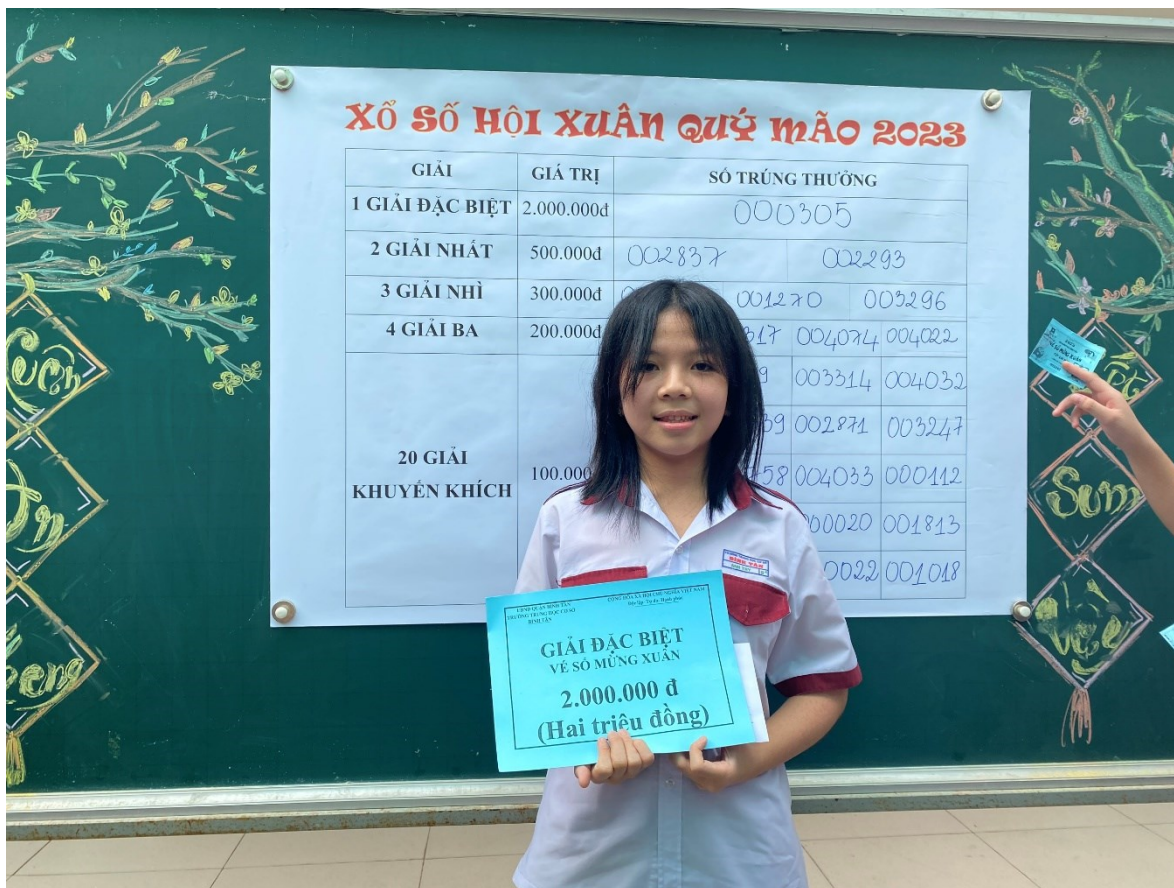 XỔ SỐ HỘI XUÂN QUÝ MÃO 2023
GIẢI GIÁ TRỊ SỐ TRÚNG THƯỞNG
1 GIẢI ĐẶC BIỆT 2.000.000đ 000305
2 GIẢI NHẤT 500.000đ 002837 002293
3 GIẢI NHÌ 300.000đ 001270 003296
4 GIẢI BA 200.000đ 317 004074 004022
9 003314 004032
39 002871 003247
20 GIẢI
KHUYẾN KHÍCH 100.000
58 004033 000112
00020 001813
0022 001018
Sum
Vầy
UBND QUẬN BÌNH TÂN
TRƯỜNG TRUNG HỌC CƠ SỞ
BÌNH TÂN
CỘNG HÒA XÃ HỘI CHỦ NGHĨA VIỆT NAM
Độc lập - Tự do - Hạnh phúc
GIẢI ĐẶC BIỆT
VÉ SỐ MỪNG XUÂN
2.000.000 đ
(Hai triệu đồng)
BÌNH TÂN